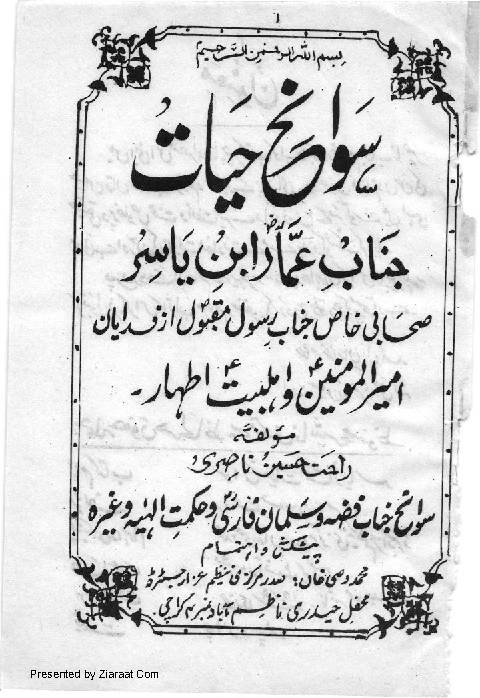 1
بسم اللہ الرحمن الرحیم
سوانح حیات
جنابِ عمّارؓ ابنِ یاسر
صحابیٔ خاص جناب رسول مقبولؐ از فدایان
امیر المومنینؑ و اہلبیتؑ اطہار۔
مؤلفہ
راحت حسین ناصری
سوانح جناب فضہ و سلمان فارسیؓ و حکمتِ الٰہیہ وغیرہ
پیشکش و اہتمام
محمد وصی خاں: صدر مرکزی تنظیم عزا رجسٹرڈ
محفل حیدری ناظم آباد نمبر ۴ کراچی
Presented by Ziaraat Com